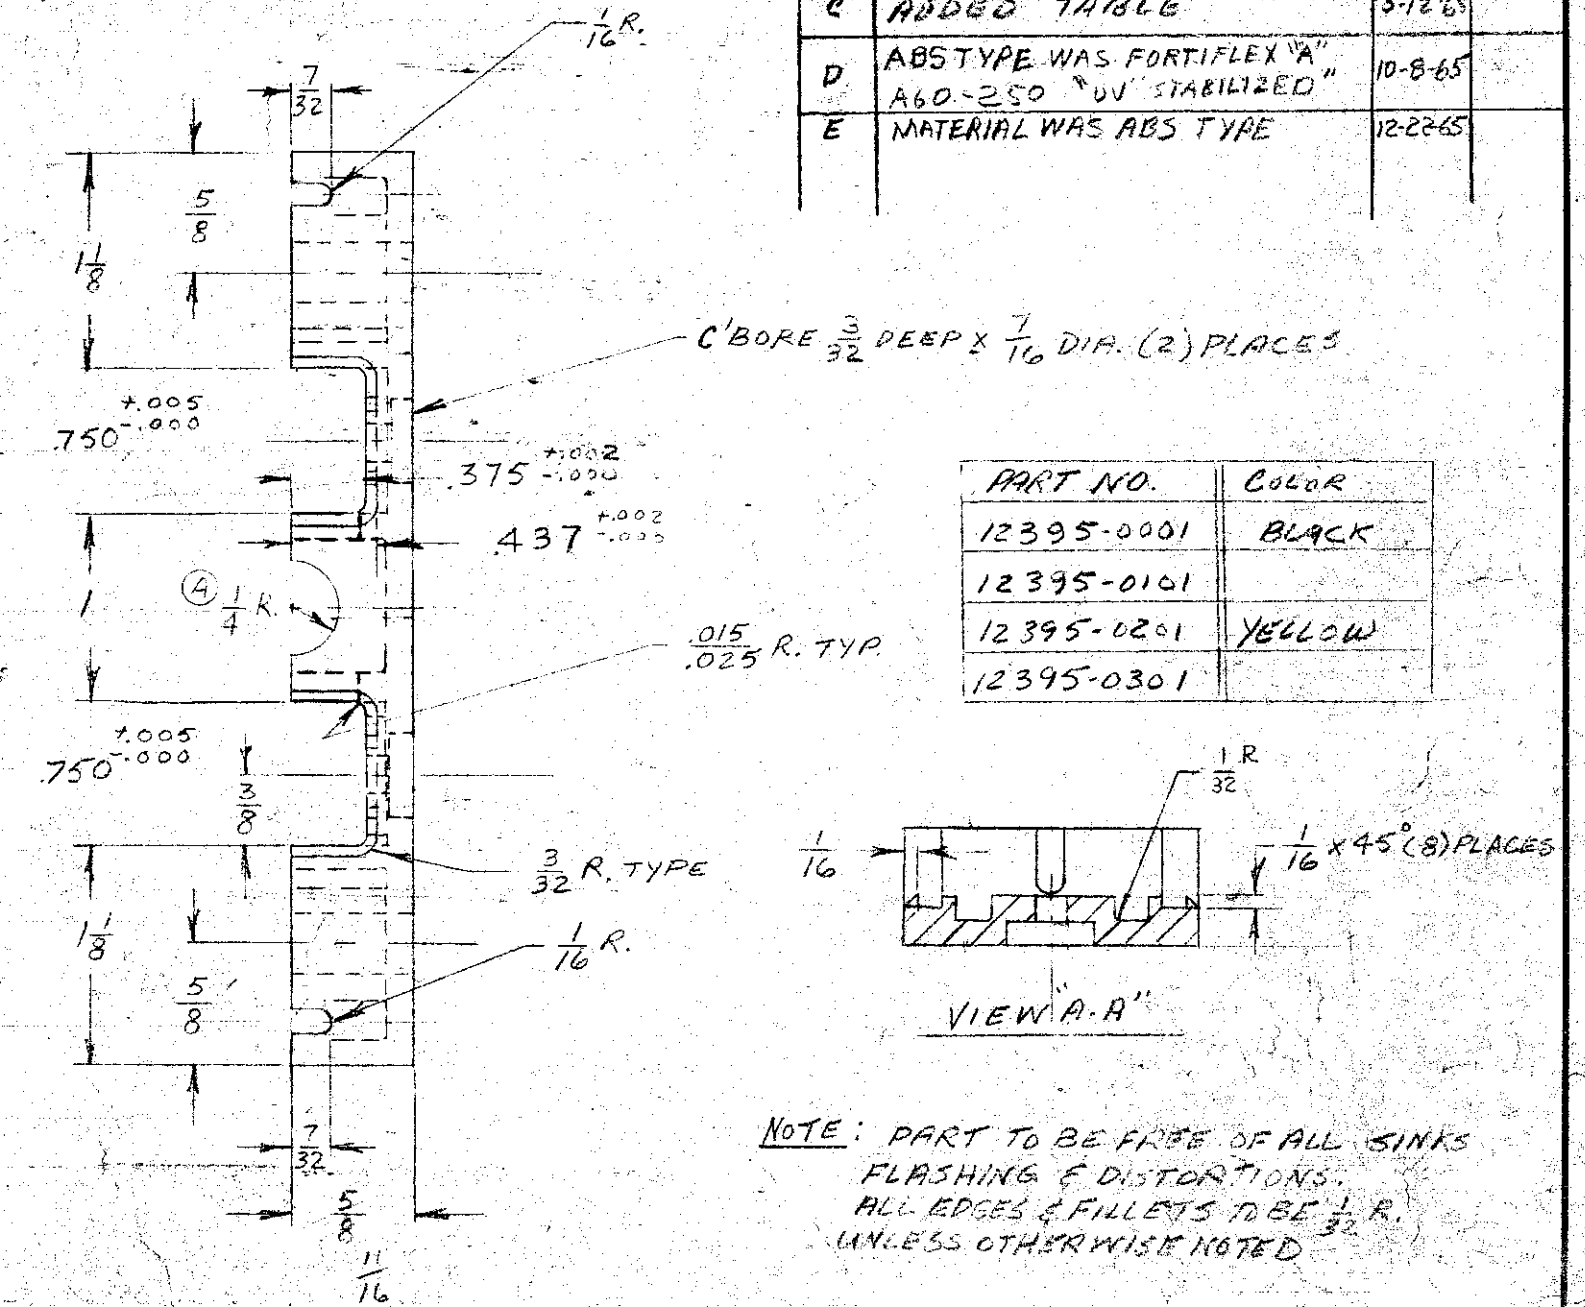 C ADDED TABLE
D ABS TYPE WAS FORTIFLEX "A"
A60-250 "UV" STABILIZED" 10-8-65
E MATERIAL WAS ABS TYPE 12-22-65
1/16 R.
7/32
5/8
1 1/8
C'BORE 3/32 DEEP X 7/16 DIA. (2) PLACES
.750 +.005 -.000
.375 +.002 -.000
.437 +.002
A 1/4 R.
1
.015/.025 R. TYP.
.750 +.005 -.000
3/8
3/32 R. TYPE
1 1/8
1/16 R.
5/8
7/32
5/8
11/16
PART NO. COLOR
12395-0001 BLACK
12395-0101
12395-0201 YELLOW
12395-0301
1/32 R
1/16
1/16 x 45° (8) PLACES
VIEW "A-A"
NOTE: PART TO BE FREE OF ALL SINKS
FLASHING & DISTORTIONS.
ALL EDGES & FILLETS TO BE 1/32 R.
UNLESS OTHERWISE NOTED